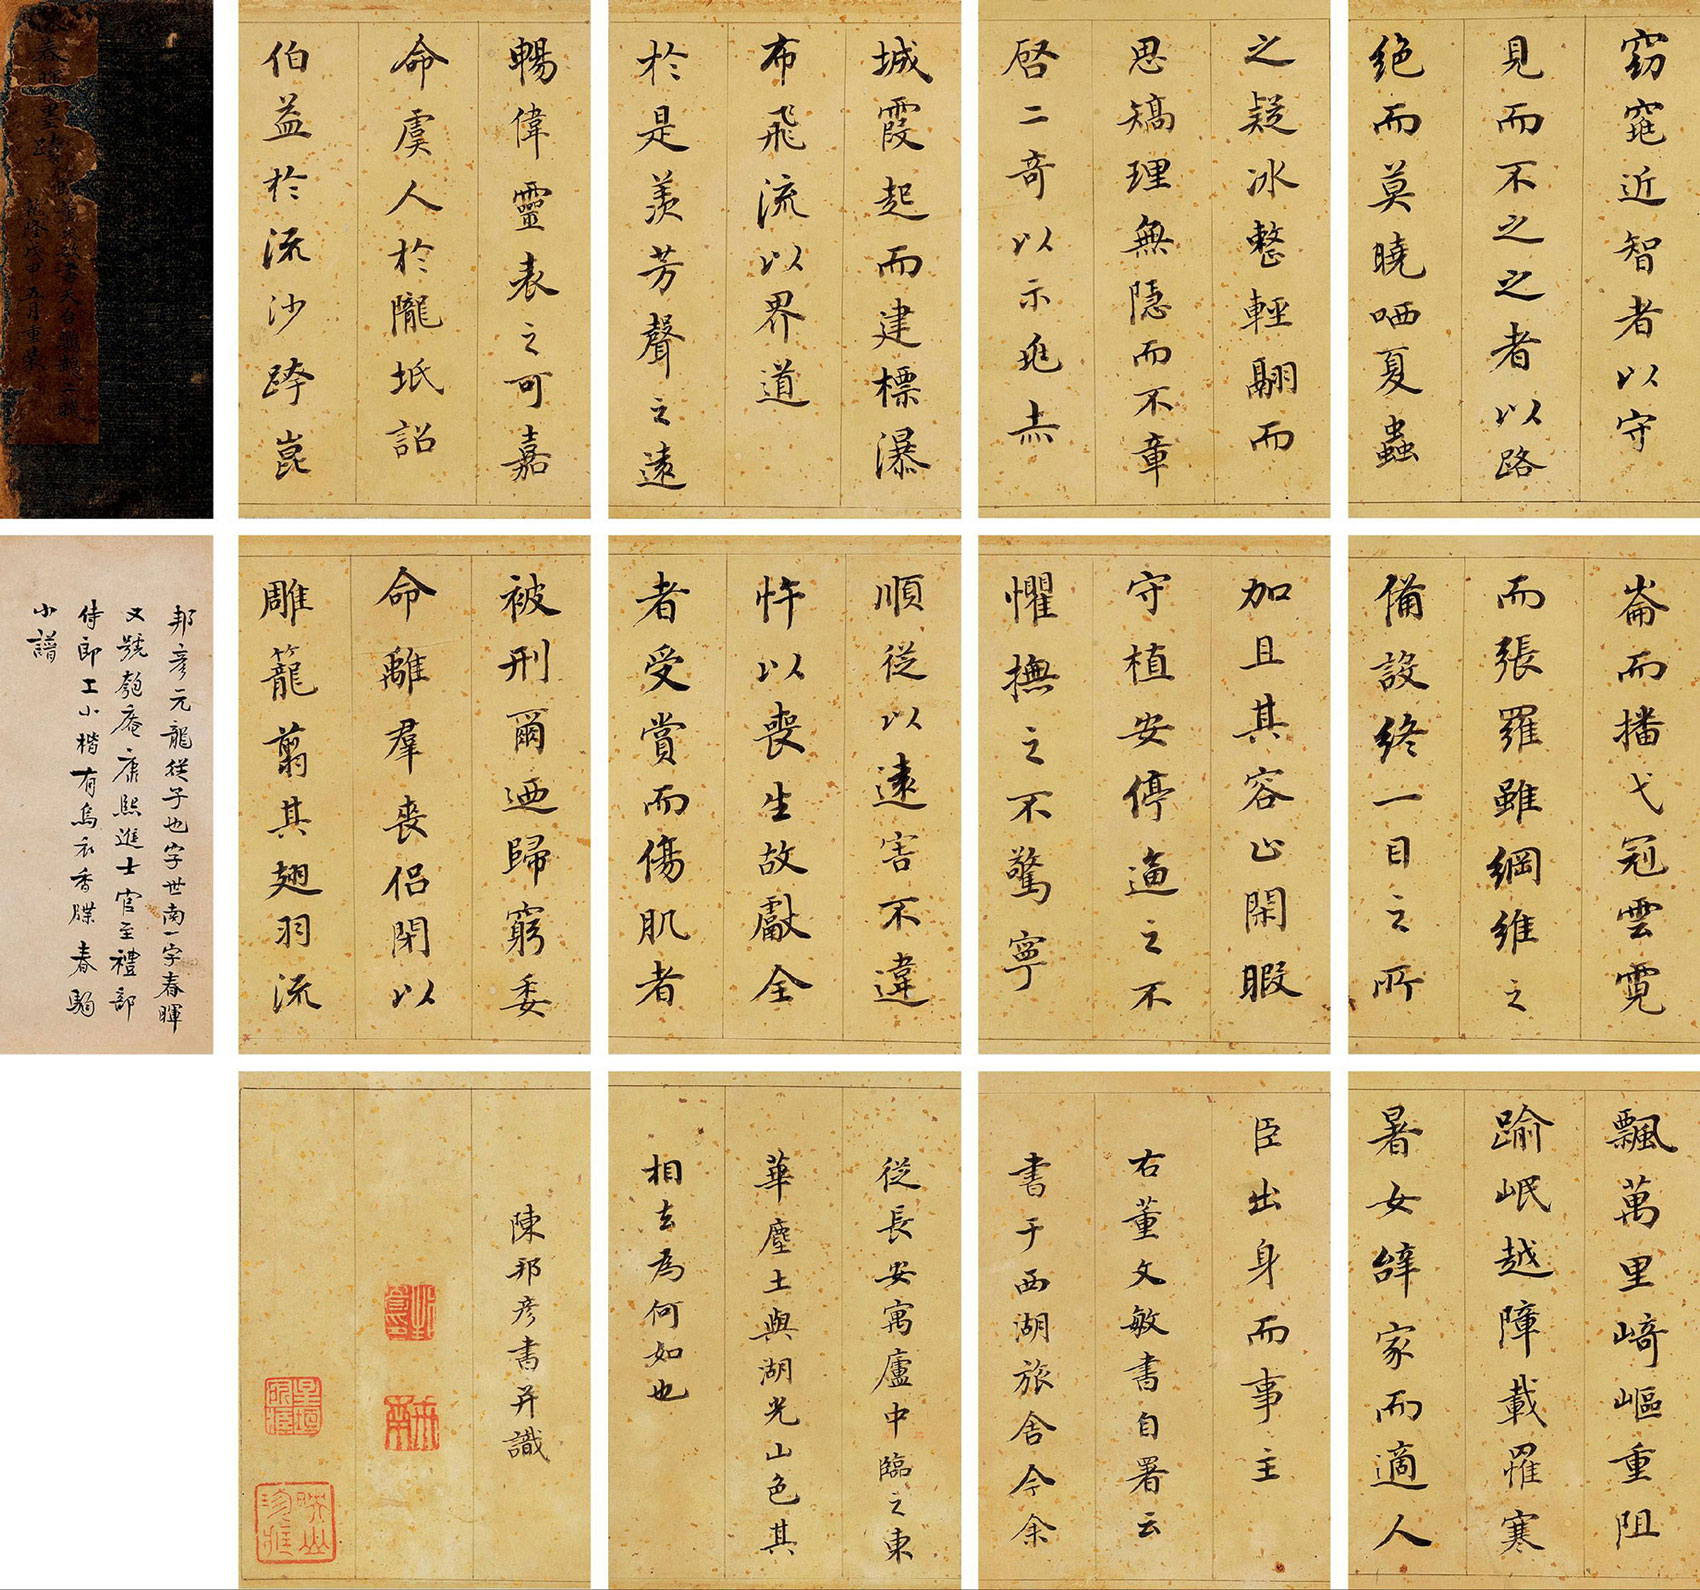 窈窕近智者以守
見而不之之者以路
绝而莫曉哂夏蟲
之疑冰整輕翮而
思矯理無隱而不章
啓二奇以示兆赤
城霞起而建標瀑
布飛流以界道
於是羨芳聲之遠
暢偉靈表之可嘉
命虞人於隴坻詔
伯益於流沙跨崑
崙而播弋冠雲霓
而張羅雖綱維之
備設終一目之所
加且其容止閑暇
守植安停逼之不
懼撫之不驚寧
順從以遠害不違
忤以喪生故獻全
者受賞而傷肌者
被刑爾迺歸窮委
命離羣喪侣閉以
雕籠翦其翅羽流
飄萬里崎嶇重阻
踰岷越障載罹寒
暑女辤家而適人
臣出身而事主
右董文敏書自署云
書于西湖旅舍今余
從長安寓廬中臨之東
華塵土與湖光山色其
相去為何如也
陳邦彦書并識
邦彦元龍從子也字世南一字春暉
又號匏庵康熙進士官至禮部
侍郎工小楷有烏衣香牒春駒
小譜
乾隆戊申五月重裝